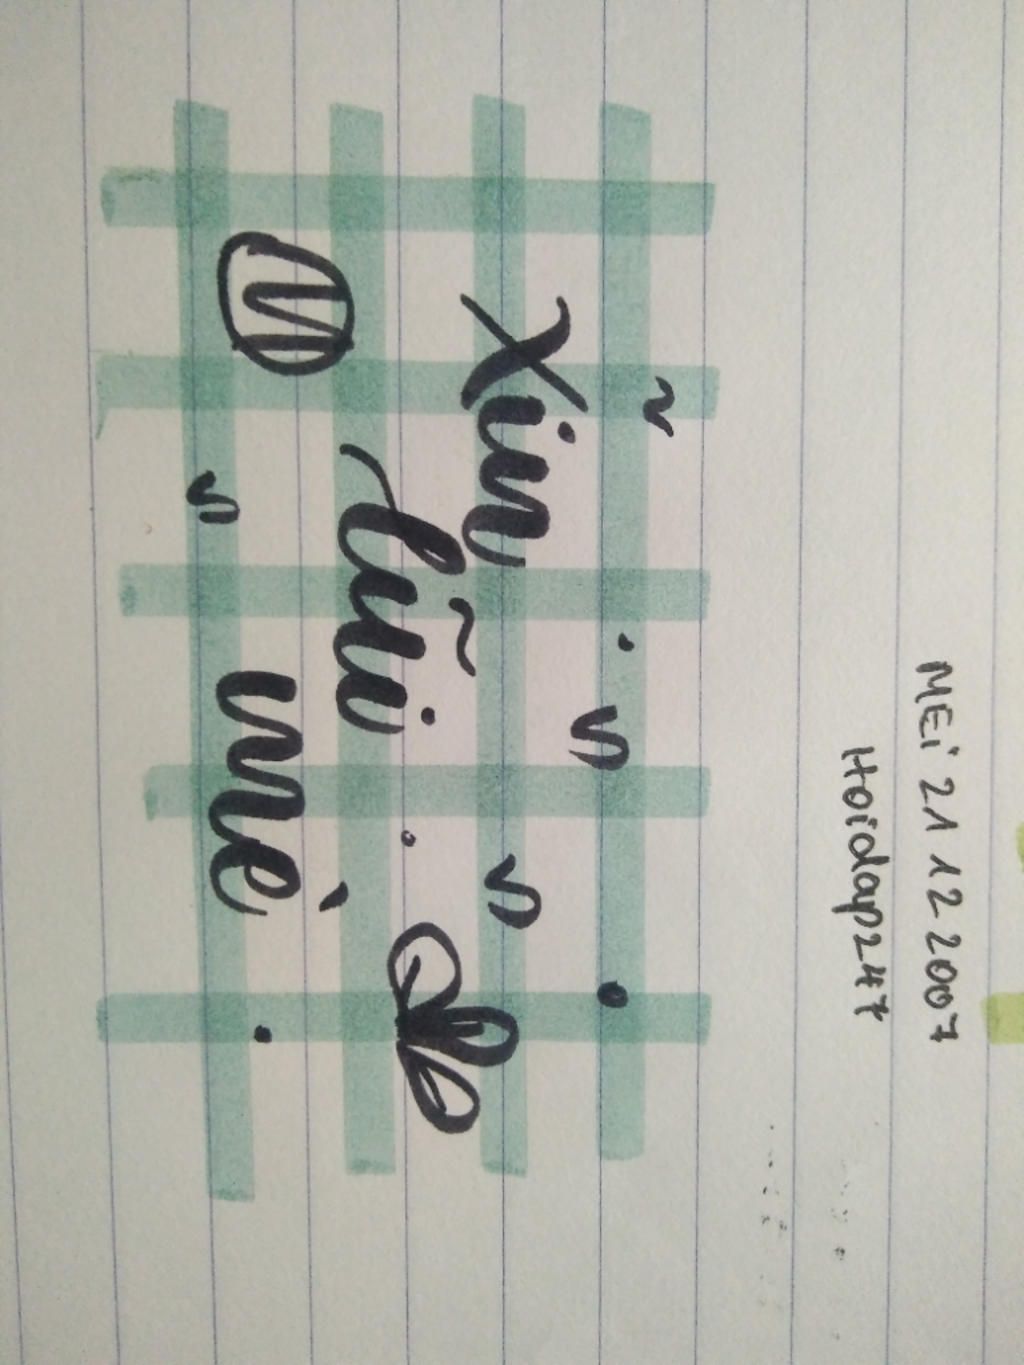 MEi 21 12 2007
Hoidap247
Xin
lũi
mè